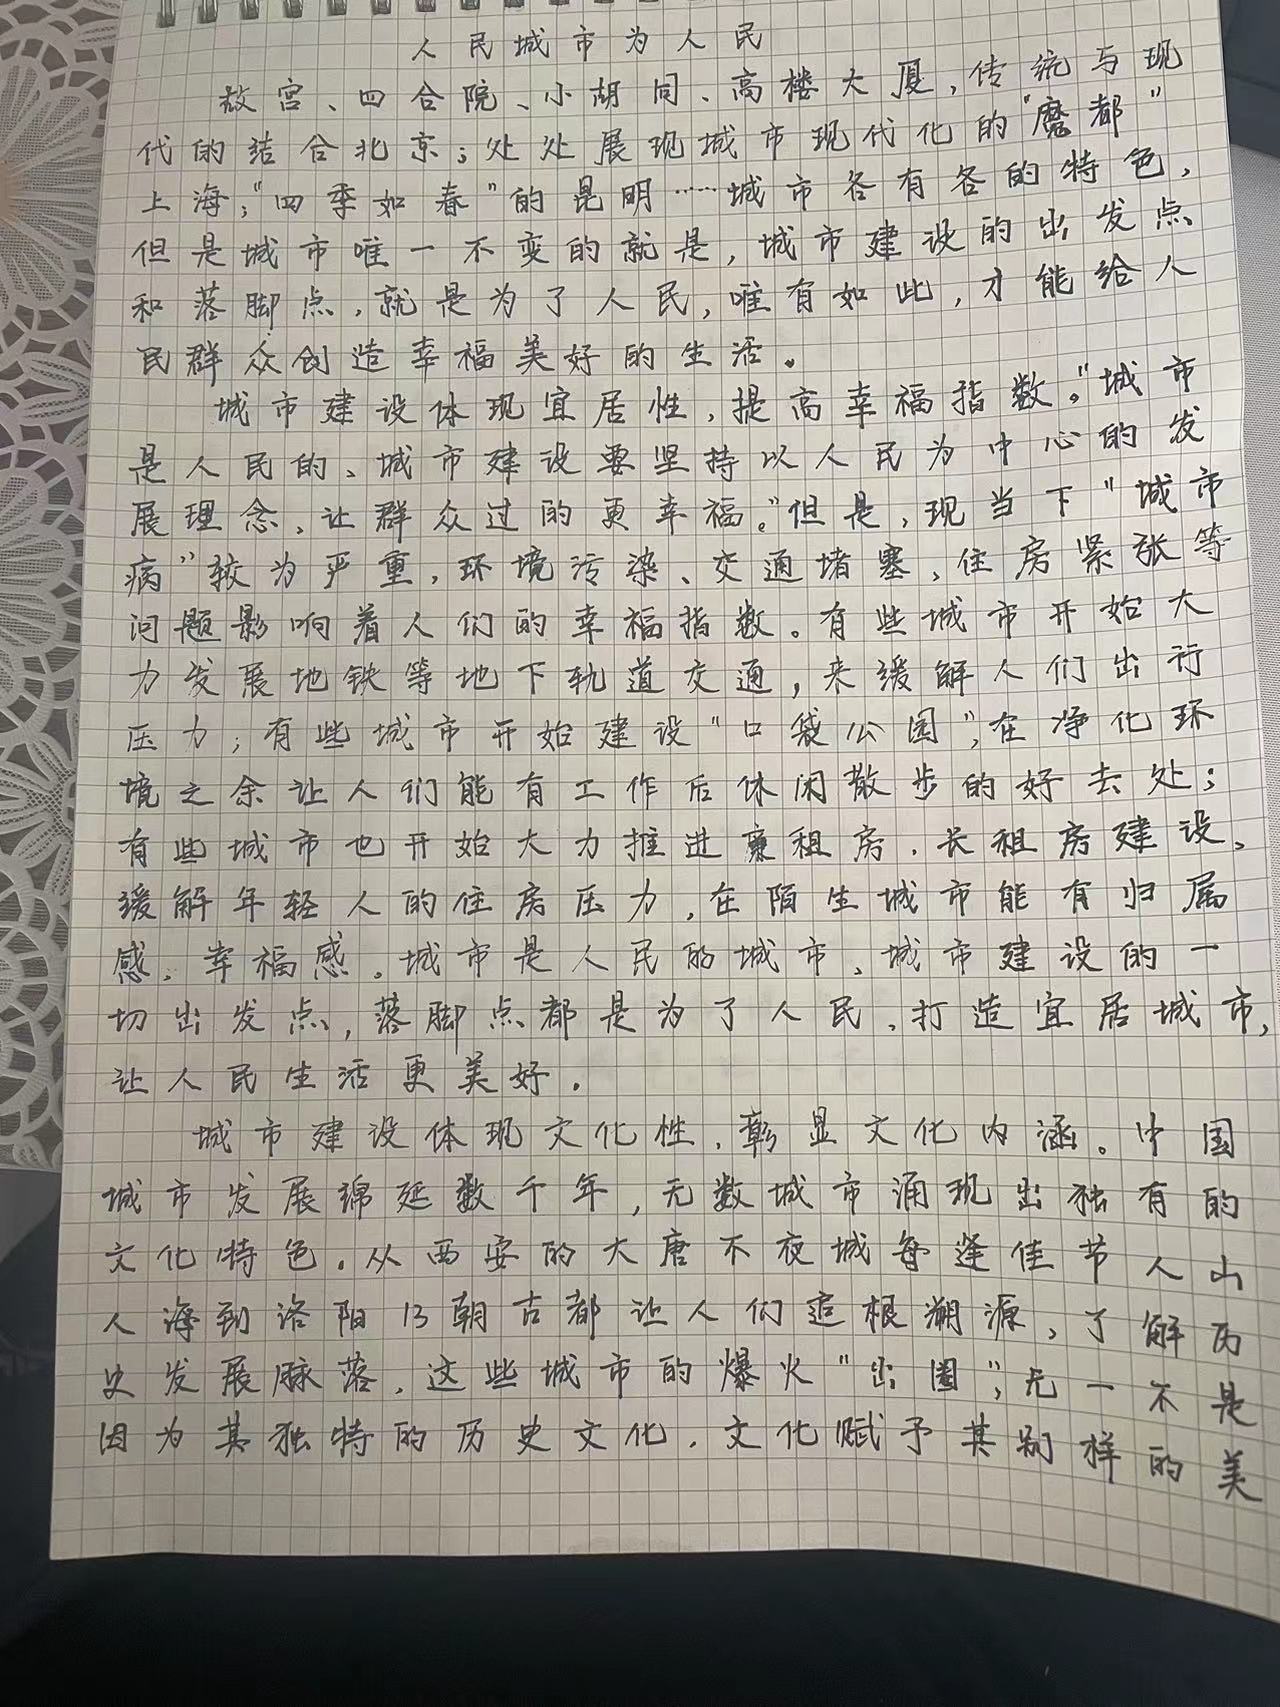 人民城市为人民
故宫、四合院、小胡同、高楼大厦,传统与现
代的结合北京;处处展现城市现代化的"魔都"
上海;"四季如春"的昆明……城市各有各的特色,
但是城市唯一不变的就是,城市建设的出发点
和落脚点,就是为了人民,唯有如此,才能给人
民群众创造幸福美好的生活。
城市建设体现宜居性,提高幸福指数。"城市
是人民的、城市建设要坚持以人民为中心的发
展理念,让群众过的更幸福。"但是,现当下"城市
病"较为严重,环境污染、交通堵塞,住房紧张等
问题影响着人们的幸福指数。有些城市开始大
力发展地铁等地下轨道交通,来缓解人们出行
压力;有些城市开始建设"口袋公园",在净化环
境之余让人们能有工作后休闲散步的好去处;
有些城市也开始大力推进廉租房、长租房建设,
缓解年轻人的住房压力,在陌生城市能有归属
感、幸福感。城市是人民的城市、城市建设的一
切出发点,落脚点都是为了人民,打造宜居城市,
让人民生活更美好。
城市建设体现文化性,彰显文化内涵。中国
城市发展绵延数千年,无数城市涌现出独有的
文化特色。从西安的大唐不夜城每逢佳节人山
人海到洛阳13朝古都让人们追根溯源,了解历
史发展脉落,这些城市的爆火"出圈",无一不是
因为其独特的历史文化,文化赋予其别样的美